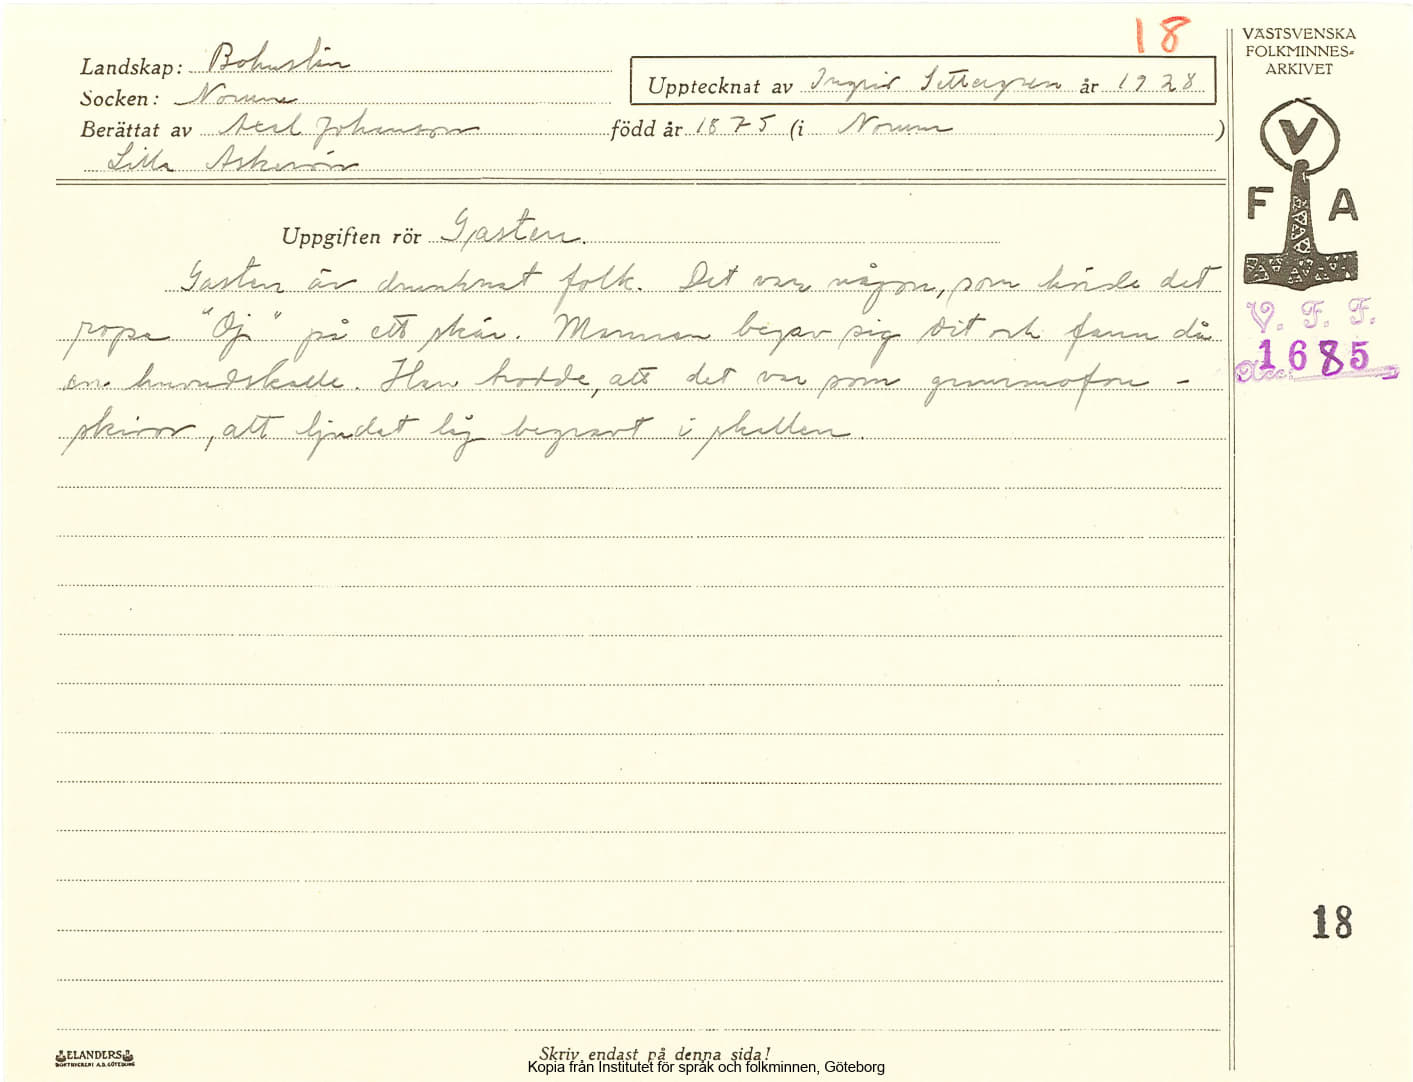 18
VÄSTSVENSKA
FOLKMINNES-
ARKIVET
Landskap: Bohuslän
Upptecknat av Ingrid Settergren år 1928
Socken: Norum
Berättat av Axel Johansson född år 1875 (i Norum)
Lilla Askerön
V
F A
Uppgiften rör Gasten.
Gasten är drunknat folk. Det var någon, som hörde det
ropa "Oj" på ett skär. Mannen begav sig dit och fann då
en huvudskalle. Han trodde, att det var som grammofon-
skivor, att ljudet låg begravt i skallen.
V. F. F.
Acc. 1685
18
ELANDERS
BOKTRYCKERI A.B. GÖTEBORG
Skriv endast på denna sida!
Kopia från Institutet för språk och folkminnen, Göteborg